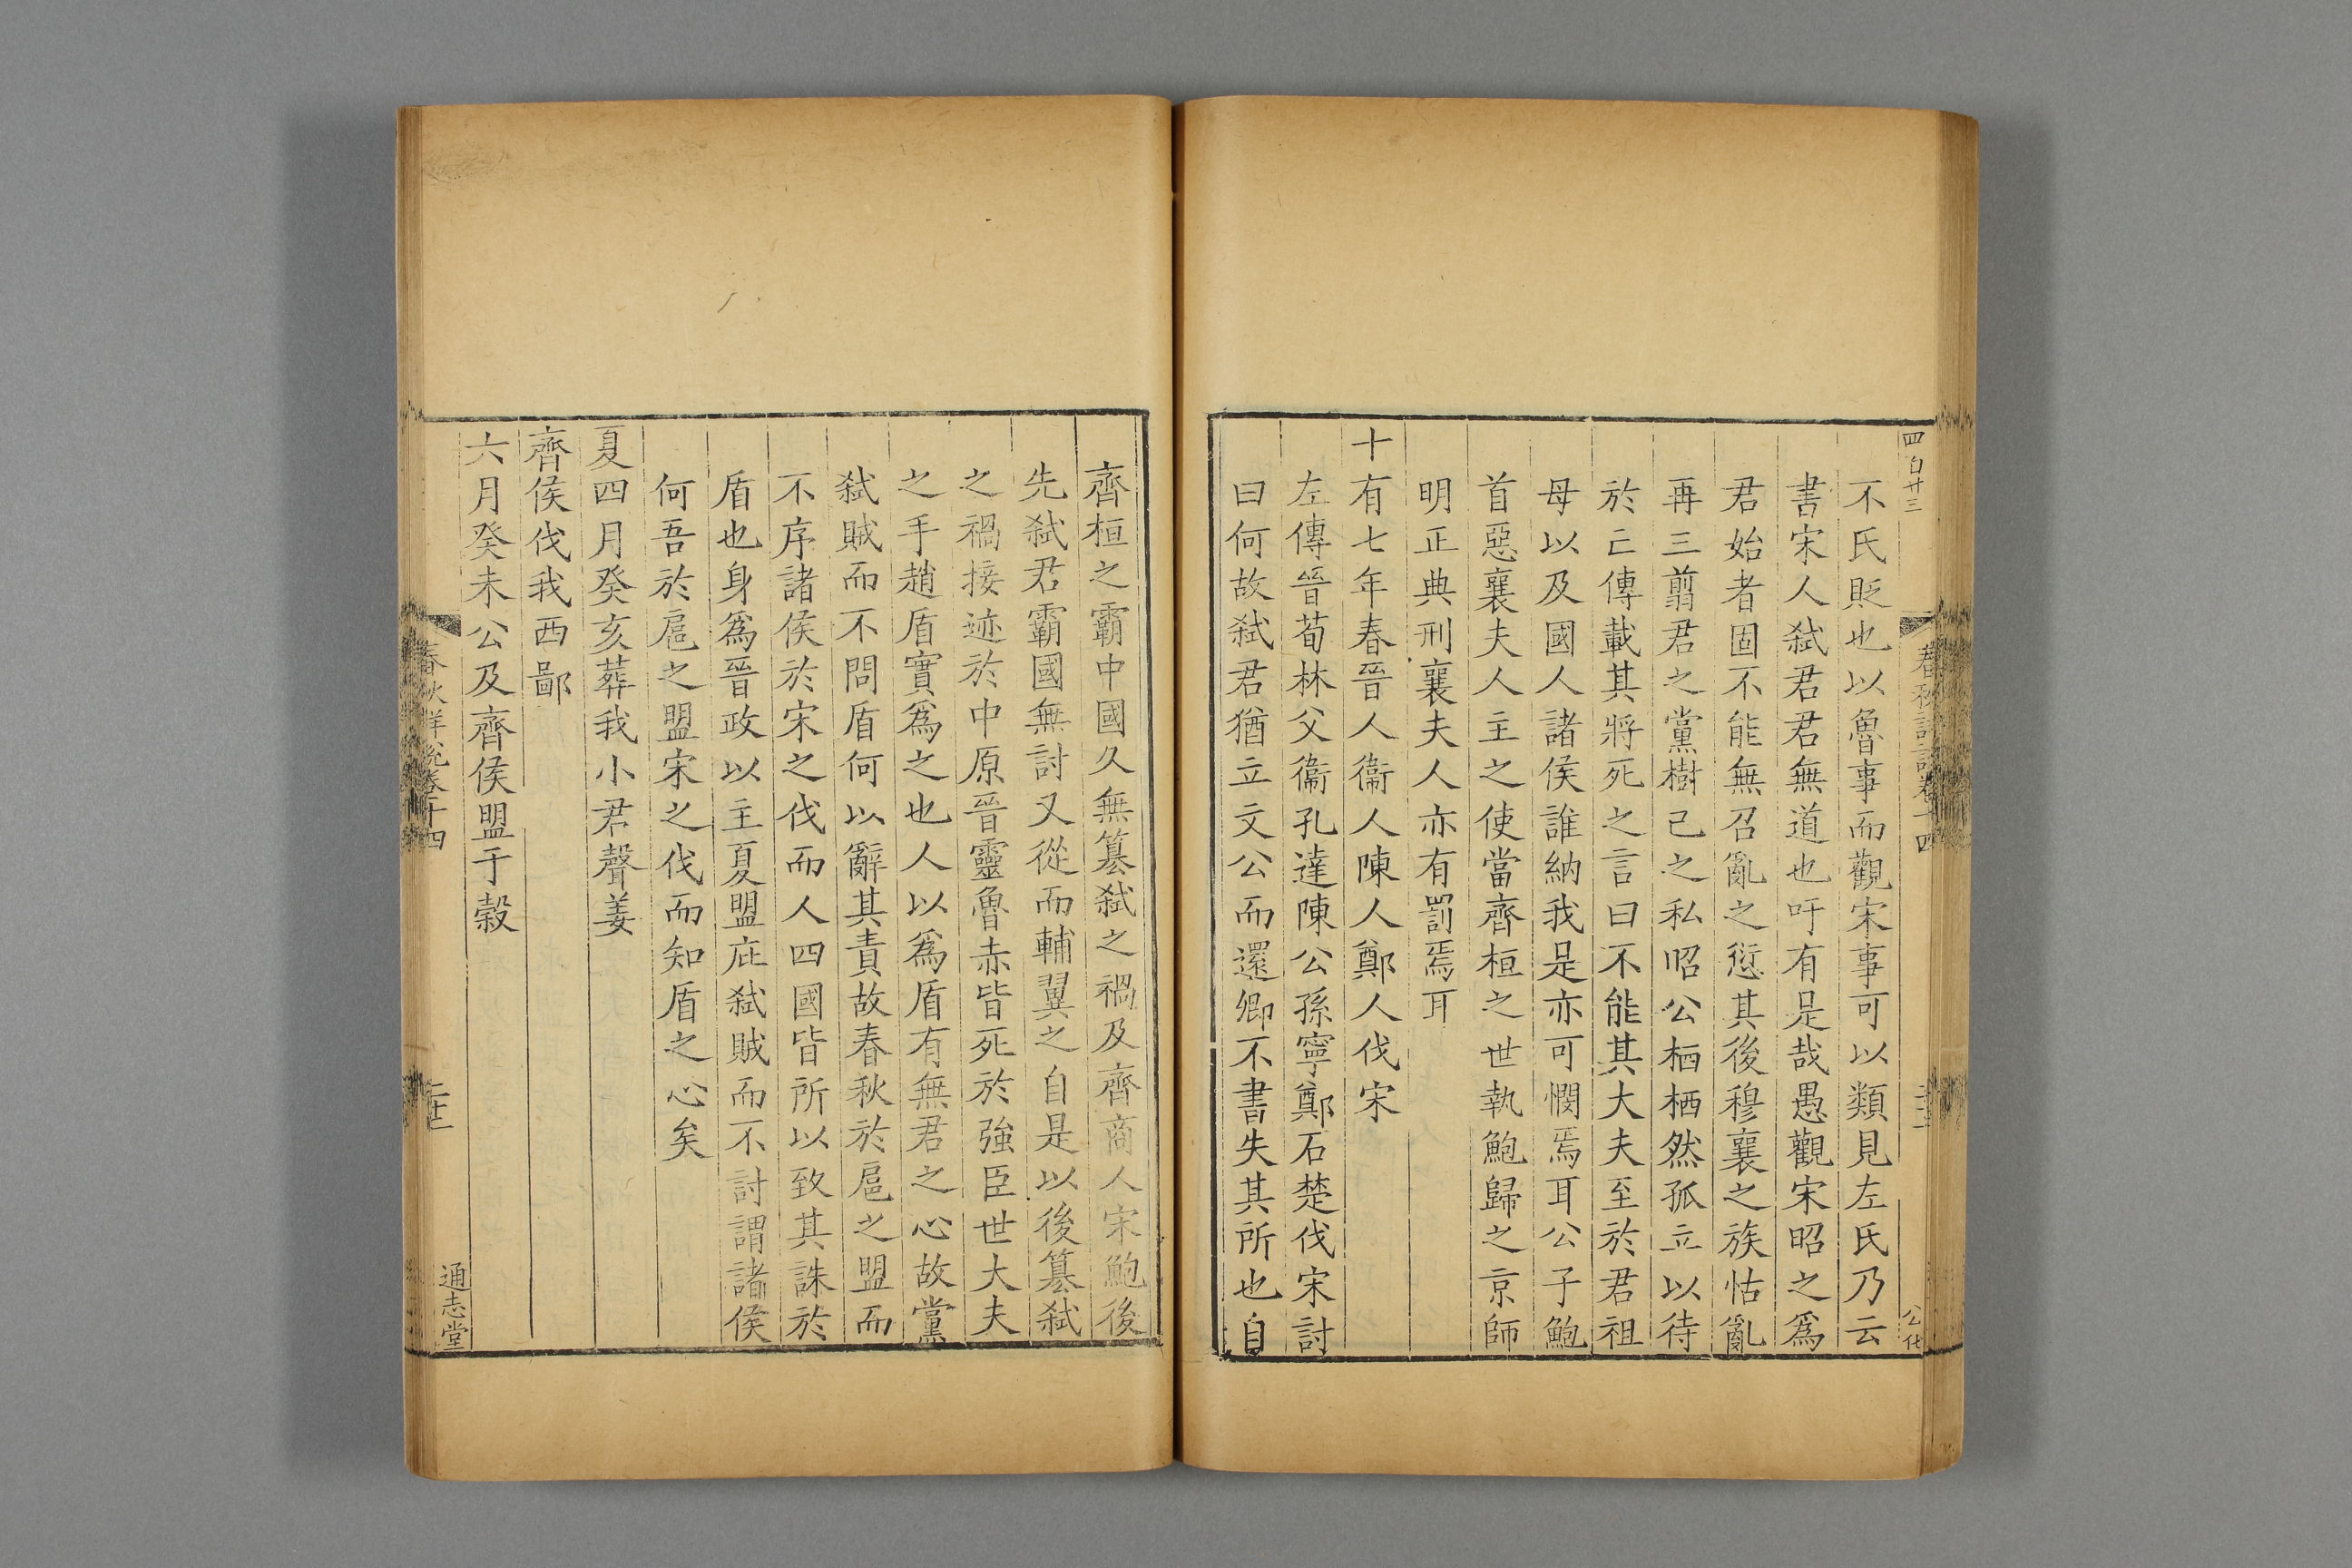 四百廿三
不氏貶也以魯事而觀宋事可以類見左氏乃云
書宋人弒君君無道也吁有是哉愚觀宋昭之爲
君始者固不能無召亂之愆其後穆襄之族怙亂
再三翦君之黨樹己之私昭公栖栖然孤立以待
於亡傳載其將死之言曰不能其大夫至於君祖
母以及國人諸侯誰納我是亦可憫焉耳公子鮑
首惡襄夫人主之使當齊桓之世執鮑歸之京師
明正典刑襄夫人亦有罰焉耳
十有七年春晉人衞人陳人鄭人伐宋
左傳晉荀林父衞孔達陳公孫寧鄭石楚伐宋討
曰何故弒君猶立文公而還卿不書失其所也自
齊桓之霸中國久無篡弒之禍及齊商人宋鮑後
先弒君霸國無討又從而輔翼之自是以後篡弒
之禍接迹於中原晉靈魯赤皆死於強臣世大夫
之手趙盾實爲之也人以爲盾有無君之心故黨
弒賊而不問盾何以辭其責故春秋於扈之盟而
不序諸侯於宋之伐而人四國皆所以致其誅於
盾也身爲晉政以主夏盟庇弒賊而不討謂諸侯
何吾於扈之盟宋之伐而知盾之心矣
夏四月癸亥葬我小君聲姜
齊侯伐我西鄙
六月癸未公及齊侯盟于穀
春秋詳說卷十四
通志堂